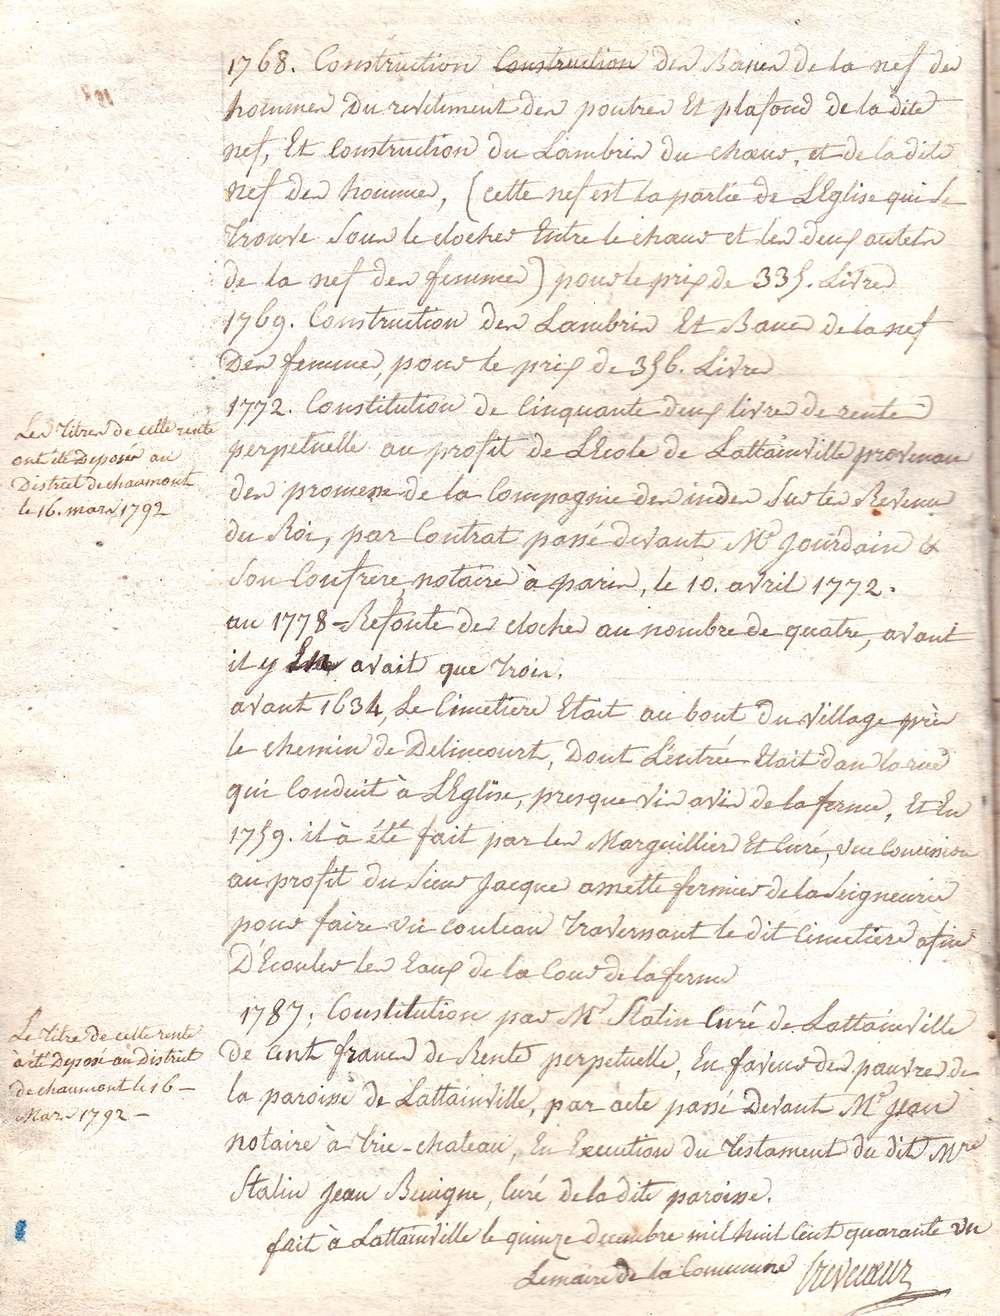 1768. Construction Construction des Bancs de la nef des
hommes du revitement des poutres Et plafond de la dite
nef, Et Construction du Lambris du chœur, et de la dite
nef des hommes, (cette nef est la partie de L'Eglise qui se
trouve sous le clocher Entre le chœur et les deux autels
de la nef des femmes) pour le prix de 335. Livres
1769. Construction des Lambris Et Bancs de la nef
Des femmes, pour le prix de 356. Livres
1772. Constitution de Cinquante deux livres de rente
perpetuelle au profit de L'Ecole de Lattainville provenan
des promesse de la Compagnie des indes sur les Revenus
du Roi, par Contrat passé devant Me Jourdain &
son Confrere, notaires à paris, le 10. avril 1772.
an 1778 = Refonte des cloches au nombre de quatre, avant
il y En avait que trois.
avant 1634, Le Cimetiere Etait au bout du village près
le chemin de Delincourt, Dont L'entrée Etait dans la rue
qui Conduit à L'Eglise, presque vis avis de la ferme, Et En
1759. il à été fait par les Marguilliers Et Curé, une Concession
au profit du Sieur Jacque amette fermier de la Seigneurie
pour faire un couleau traversant le dit Cimetiere afin
D'Ecouler les Eaux de la Cour de la ferme
1787. Constitution par Mr Stalin Curé de Lattainville
De Cent francs de Rente perpetuelle, En faveur des pauvres de
la paroisse de Lattainville, par acte passé Devant Me Jean
notaire à trie-chateau, En Execution du testament du dit Mre
Stalin Jean Benigne, Curé de la dite paroisse.
fait à Lattainville le quinze decembre mil huit Cent quarante un
Le maire de la Commune
Crevecœur
Les titres de cette rente
ont été Deposés au
District de chaumont
le 16. mars 1792
Le titre de cette rente
à été Deposé au District
de chaumont le 16 -
Mars 1792 -